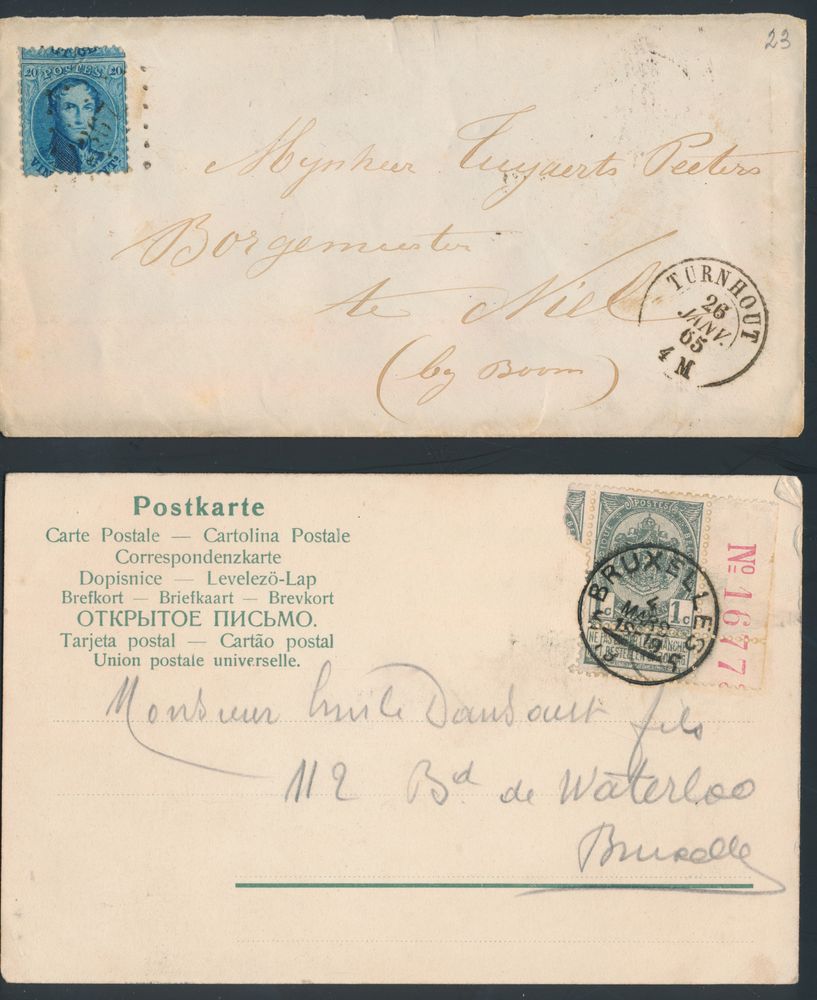 23
20 POSTES 20
Mynheer Tuyaerts Peeters
Borgemeester
te Niel
(by Boom)
TURNHOUT
26
JANV.
65
4 M
Postkarte
Carte Postale — Cartolina Postale
Correspondenzkarte
Dopisnice — Levelezö-Lap
Brefkort — Briefkaart — Brevkort
ОТКРЫТОЕ ПИСЬМО.
Tarjeta postal — Cartão postal
Union postale universelle.
POSTES
BRUXELLES
MARS
1 c
No 1677
Monsieur Emile Dansaert fils
112 Bd de Waterloo
Bruxelles